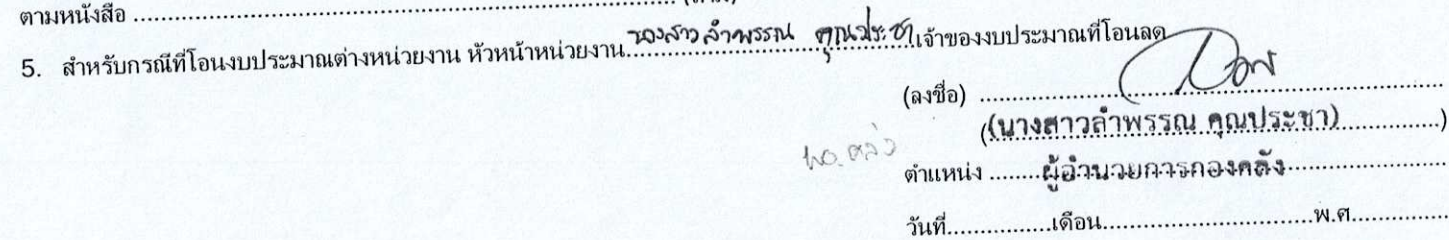 ตามหนังสือ ........................................................................
5. สำหรับกรณีที่โอนงบประมาณต่างหน่วยงาน หัวหน้าหน่วยงาน...นางสาวลำพรรณ คุณประชา...เจ้าของงบประมาณที่โอนลด
(ลงชื่อ) ........................................................................
(นางสาวลำพรรณ คุณประชา)
ผอ.คลัง
ตำแหน่ง ........ผู้อำนวยการกองคลัง........................
วันที่................เดือน.................................พ.ศ...............